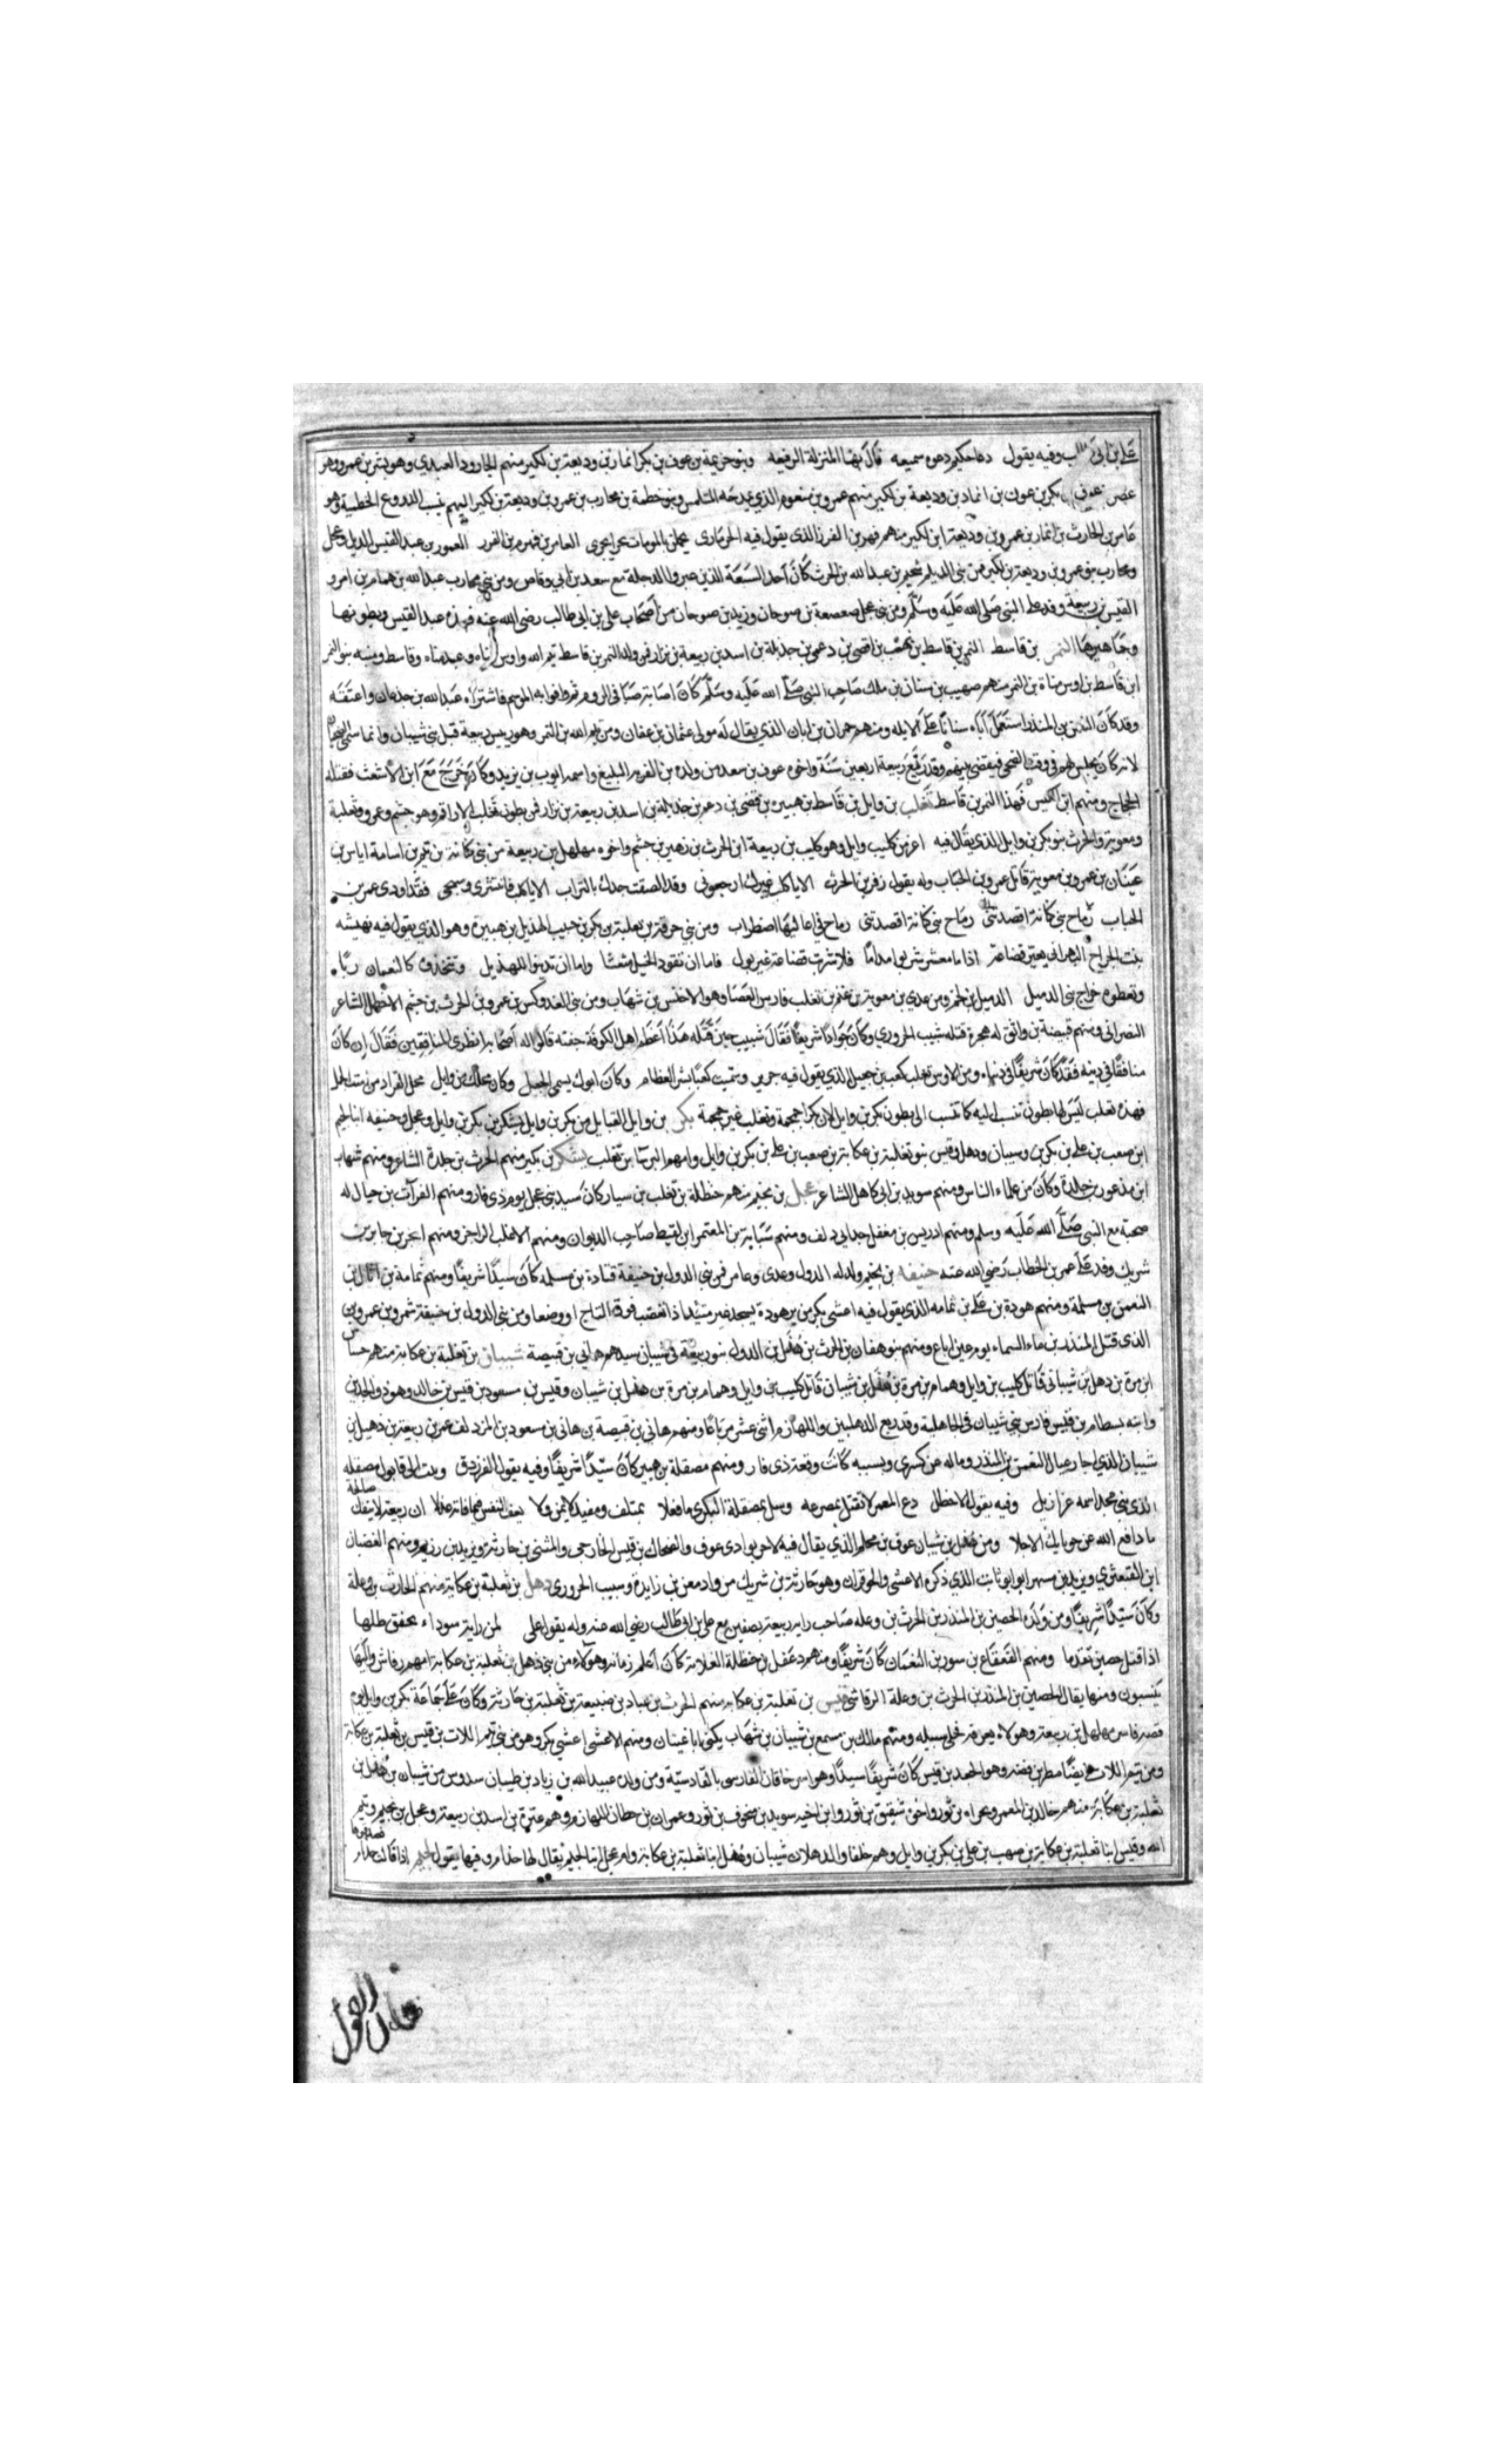 علي بن ابي وفيه يقول دعا حكيم دعوة سميعه نال بها المنزلة الرفيعه وبنو خزيمة بن عوف بن بكر انمار بن وديعة بن لكيز منهم الجارود العبدي وهو بشر بن عمرو وهر
عصر عوف بكر بن عوف بن انمار بن وديعة بن لكيز منهم عمرو بن الذي يمدحه المتلمس وبنو حطمة بن محارب بن عمرو بن وديعة بن لكيز اليهم ينسب الدروع الحطمية وهو
عامر بن الحارث بن انمار بن عمرو بن وديعة ابن لكيز منهم بن الفرز الذي يقول فيه يحملن بالمومات بحرا يجري العامر بن العمور بن عبد القيس الديل وعجل
ومحارب بنو عمرو بن وديعة بن لكيز فمن بني الديل بن عبد الله بن الحرث كان احد السبعة الذين عبروا الدجلة مع سعد بن ابي وقاص ومن بني محارب عبد الله بن همام بن امرو
القيس بن ربيعة وفد على النبي صلى الله عليه وسلم ومن بني عجل صعصعة بن صوحان وزيد بن صوحان من اصحاب علي بن ابي طالب رضي الله عنه فهذه عبد القيس وبطونها
وجماهيرها النمر بن قاسط النمر بن قاسط بن هنب بن افصى بن دعمي بن جديلة بن اسد بن ربيعة بن نزار فمن ولد النمر بن قاسط تيم الله واوس مناه وعبد مناه وقاسط ومنبه بنو النمر
ابن قاسط بن اوس مناة بن النمر منهم صهيب بن سنان بن ملك صاحب النبي صلى الله عليه وسلم كان اصابته صبا في الروم ثم وافوا به الموسم فاشتراه عبد الله بن جدعان واعتقه
وقد كان النعمن بن المنذر استعمل اباه سنانا على الابله ومنهم حمران بن ابان الذي يقال له مولى عثمان بن عفان ومن تيم الله بن النمر وهو رييس ربيعة قبل بني شيبان وانما سمي
لانه كان يجلس لهم في وقت الضحى فيقضي بينهم وقد ربع ربيعة اربعين سنة واخوه عوف بن سعد من ولده بن القرية البليغ واسمه ايوب بن يزيد وكان خرج مع ابن الاشعث فقتله
الحجاج ومنهم ابن الكيس فهذا النمر بن قاسط تغلب بن وايل بن قاسط بن بن اسد بن ربيعة بن نزار فمن بطون تغلب الاراقم وهم جشم وعمرو وثعلبة
ومعوية والحرث بنو بكر بن وايل الذي يقال فيه اعز من كليب وايل وهو كليب بن ربيعة ابن الحرث بن زهير بن جشم واخوه مهلهل بن ربيعة من بني كانة بن تيم بن اسامة اياس بن
عينان بن عمرو بن معوية قاتل عمرو بن الحباب وله يقول زفر بن الحرث الا يا كلب غيرك ارجعوني وقد الصقت خدك بالتراب الا يا كلب فانتشري وسيحي فقد اودى عمير بن
الحباب رماح بني كانة اقصدتني رماح بني كانة اقصدتني رماح في اعاليها اضطراب ومن بني حرفة بن ثعلبة بن بكر بن حبيب الهذيل بن هبيرة وهو الذي يقول فيه نهيشه
بنت الجراح البهراني يعير قضاعة اذا ما معشر شربوا مداما فلا شربت قضاعة غير بول فاما ان تقود الخيل شعثا واما ان تدينوا للهذيل وتتخذوه كالنعمان ربا
وتعطوه خراج بني الدميل الدميل بن لخم ومن عدي بن معوية بن غنم بن تغلب فارس العصا وهو الاخنس بن شهاب ومن بني الفدوكس بن عمرو بن الحرث بن جشم الاخطل الشاعر
النصراني ومنهم قبيصة بن والق له هجرة قتله شبيب الحروري وكان جوادا شريفا فقال شبيب حين قتله هذا اعظم اهل الكوفة جفنة قالوا له اصحابه انظر الى المنافقين فقال ان كان
منافقا في دينه فقد كان شريفا في دنياه ومن الاوس تغلب كعب بن جعيل الذي يقول فيه جرير وسميت كعبا بشر العظام وكان ابوك يسمى الجعل وكان محلك من وايل محل القراد من است الجمل
فهذه تغلب ليس لها بطون تنسب اليه كما تنسب الى بطون بكر بن وايل لان بكرا جمجمة وتغلب غير جمجمة بكر بن وايل القبايل من بكر بن وايل يشكر بن بكر بن وايل وعجل وحنيفه ابنا لجيم
ابن صعب بن علي بن بكر بن وشيبان وذهل وقيس بنو ثعلبة بن عكابة بن صعب بن علي بن بكر بن وايل وامهم البرشا بن تغلب يشكر بن بكير منهم الحرث بن حلزة الشاعر ومنهم شهاب
ابن مذعور بن حلزة وكان من علماء الناس ومنهم سويد بن ابي كاهل الشاعر عجل بن لجيم منهم حنظلة بن ثعلب بن سيار كان سيد بني عجل يوم ذي قار ومنهم الفرات بن حيان له
صحبة مع النبي صلى الله عليه وسلم ومنهم ادريس بن معقل جد ابي دلف ومنهم شبابة بن المعتمر ابن لقيط صاحب الديوان ومنهم الاغلب الراجز ومنهم ابحر بن جابر بن
شريك وفد على عمر بن الخطاب رضي الله عنه حنيفه بن لجيم ولد له الدول وعدي وعامر فمن بني الدول بن حنيفة قتادة بن مسلمه كان سيدا شريفا ومنهم ثمامة بن اثال بن
النعمن بن مسلمة ومنهم هودة بن علي بن ثمامه الذي يقول فيه اعشى بكر من ير هودة يسجد غير متئد اذا تعصب فوق التاج او وضعا ومن بني الدول بن حنيفة شمر بن عمرو بن
الذي قتل المنذر بن ماء السماء يوم عين اباغ ومنهم بنو هفان بن الحرث بن ذهل بن الدول بنو ربيعة في شيبان سيدهم هاني بن قبيصة شيبان بن ثعلبة بن عكابة منهم جساس
ابن مرة بن ذهل بن شيباني قاتل كليب بن وايل وهمام بن مرة بن ذهل بن شيبان قاتل كليب بن وايل وهمام بن مرة بن ذهل بن شيبان وقيس بن مسعود بن قيس بن خالد وهو ذو الجدين
وابنه بسطام بن قيس فارس بني شيبان في الجاهلية وقد ربع الذهلين واللهازم اثني عشر مرباعا ومنهم هاني بن قبيصة بن هاني بن مسعود بن المزدلف عمرو بن ربيعة بن ذهل بن
شيبان الذي اجار عيال النعمن بن المنذر وماله عن كسرى وبسببه كانت وقعة ذي قار ومنهم مصقلة بن هبير كان سيدا شريفا وفيه يقول الفرزدق وبيت ابي قابوس مصقلة
الذي بني مجد اسمه غير زايل وفيه يقول الاخطل دع المغمر لا تقتل بمصرعه وسل بمصقلة البكري ما فعلا بمتلف ومفيد لا يمن ولا يعنف النفس فيما فاته عذلا ان ربيعة لا ينفك صالحة
ما دافع الله عن حوبايك الاجلا ومن ذهل بن شيبان عوف بن محلم الذي يقال فيه لا حر بوادي عوف والضحاك بن قيس الخارجي والمثنى بن حارثة ويزيد بن رويم ومنهم الغضبان
ابن القبعثري ويزيد بن مسهر ابو ثابت الذي ذكره الاعشى والحوفزان وهو حارثة بن شريك من ولد معن بن زايدة وشبيب الحروري ذهل بن ثعلبة بن عكابة منهم الحارث بن وعلة
وكان سيدا شريفا ومن ولده الحصين بن المنذر بن الحرث بن وعله صاحب راية ربيعة بصفين مع علي بن ابي طالب رضي الله عنه وله يقول علي لمن راية سوداء يخفق ظلها
اذا قيل حصين تقدما ومنهم القعقاع بن سور بن النعمان كان شريفا ومنهم دغفل بن حنظلة العلامة كان اعلم زمانه وهؤلاء من بني ذهل بن ثعلبة بن عكابة امهم رقاش واليها
ينسبون ومنها يقال الحصين بن المنذر بن الحرث بن وعلة الرقاشي قيس بن ثعلبة بن عكابة منهم الحرث بن عباد بن ضبيعة بن ثعلبة بن حارثة وكان على جماعة بكر بن وايل يوم
قصه فاسر مهلهل بن ربيعة وهو لا يعرفه فخلى سبيله ومنهم مالك بن مسمع بن شيبان بن شهاب يكنى ابا غسان ومنهم الاعشى اعشى بكر وهو من بني تيم اللات بن قيس بن ثعلبة بن عكابة
ومن تيم اللات ايضا مطر بن فضه وهو الجعد بن قيس كان شريفا سيدا وهو اسر خاقان الفارسي بالقادسية ومن ولده عبيد الله بن زياد بن ظبيان سدوس من شيبان بن ذهل بن
ثعلبة بن عكابة منهم خالد بن المعمر ومجزاة بن ثور واخي شقيق بن ثور وابن اخيه سويد بن منجوف بن ثور وعمران بن حطان اللهازم وهم عنزة بن اسد بن ربيعة وعجل بن لجيم وتيم
الله وقيس ابنا ثعلبة بن عكابة بن صعب بن علي بن بكر بن وايل وهم حلفا والذهلان شيبان وذهل ابنا ثعلبة بن عكابة وام عجل ابنا لجيم يقال لها حذام وفيها يقول لجيم اذا قالت حذام فصدقوها